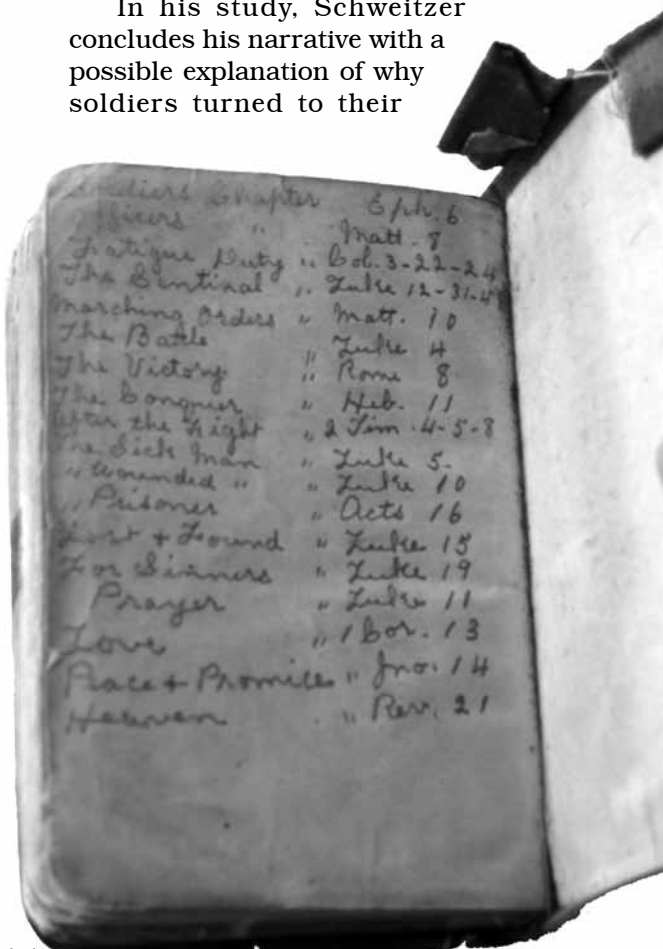 In his study, Schweitzer
concludes his narrative with a
possible explanation of why
soldiers turned to their
Soldiers Chapter Eph. 6
Officers " Matt. 8
Fatigue Duty " Col. 3-22-24
The Sentinal " Luke 12-31-4
Marching Orders " Matt. 10
The Battle " Luke 4
The Victory " Rome 8
The Conquer " Heb. 11
After the Fight " 2 Tim. 4-5-8
The Sick Man " Luke 5.
" Wounded " " Luke 10
" Prisoner " Acts 16
Lost + Found " Luke 15
For Sinners " Luke 19
Prayer " Luke 11
Love " 1 Cor. 13
Peace + Promice " Jno. 14
Heaven " Rev. 21